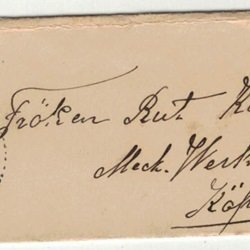 Fröken Rut K
Mech. Werk
Köp